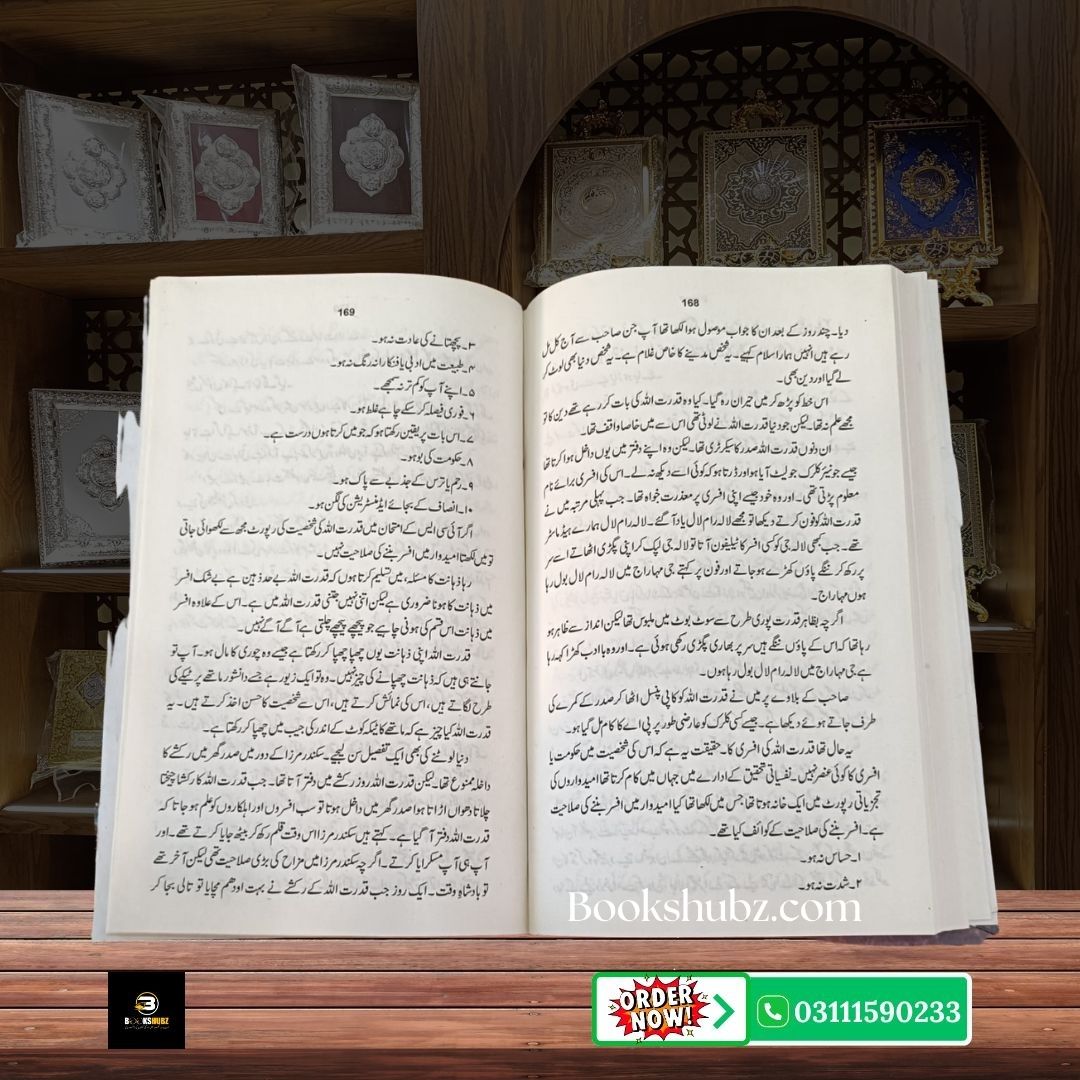 168
دیا۔ چند روز کے بعد ان کا جواب موصول ہوا لکھا تھا آپ جن صاحب سے آج کل مل
رہے ہیں انہیں ہمارا سلام کہیے۔ یہ شخص مدینے کا خاص غلام ہے۔ یہ شخص دنیا بھی لوٹ کر
لے گیا اور دین بھی۔
اس خط کو پڑھ کر میں حیران رہ گیا۔ کیا وہ قدرت اللہ کی بات کر رہے تھے دین کا تو
مجھے علم نہ تھا۔ لیکن جو دنیا قدرت اللہ نے لوٹی تھی اس سے میں خاصا واقف تھا۔
ان دنوں قدرت اللہ صدر کا سیکرٹری تھا۔ لیکن وہ اپنے دفتر میں یوں داخل ہوا کرتا تھا
جیسے جونیئر کلرک جو لیٹ آیا ہو اور ڈرتا ہو کہ کوئی اسے دیکھ نہ لے۔ اس کی افسری برائے نام
معلوم پڑتی تھی۔ اور وہ خود جیسے اپنی افسری پر معذرت خواہ تھا۔ جب پہلی مرتبہ میں نے
قدرت اللہ کو فون کرتے دیکھا تو مجھے لالہ رام لال یاد آ گئے۔ لالہ رام لال ہمارے ہیڈ ماسٹر
تھے۔ جب کبھی لالہ جی کو کسی افسر کا ٹیلیفون آتا تو لالہ جی لپک کر اپنی پگڑی اٹھاتے اسے سر
پر رکھ کر ننگے پاؤں کھڑے ہو جاتے اور فون پر کہتے جی مہاراج میں لالہ رام لال بول رہا
ہوں مہاراج۔
اگرچہ بظاہر قدرت پوری طرح سے سوٹ بوٹ میں ملبوس تھا لیکن انداز سے ظاہر ہو
رہا تھا کہ اس کے پاؤں ننگے ہیں سر پر بھاری پگڑی رکھی ہوئی ہے۔ اور وہ باادب کھڑا کہہ رہا
ہے جی مہاراج میں لالہ رام لال بول رہا ہوں۔
صاحب کے بلاوے پر میں نے قدرت اللہ کو کاپی پنسل اٹھا کر صدر کے کمرے کی
طرف جاتے ہوئے دیکھا ہے۔ جیسے کسی کلرک کو عارضی طور پر پی اے کا کام مل گیا ہو۔
یہ حال تھا قدرت اللہ کی افسری کا۔ حقیقت یہ ہے کہ اس کی شخصیت میں حکومت یا
افسری کا کوئی عنصر نہیں۔ نفسیاتی تحقیق کے ادارے میں جہاں میں کام کرتا تھا امیدواروں کی
تجزیاتی رپورٹ میں ایک خانہ ہوتا تھا جس میں لکھا تھا کیا امیدوار میں افسر بننے کی صلاحیت
ہے۔ افسر بننے کی صلاحیت کے کوائف کیا تھے۔
۱۔ حساس نہ ہو۔
۲۔ شدت نہ ہو۔
169
۳۔ پچھتانے کی عادت نہ ہو۔
۴۔ طبیعت میں ادبی یا فنکارانہ رنگ نہ ہو۔
۵۔ اپنے آپ کو کم تر نہ سمجھے۔
۶۔ فوری فیصلہ کر سکے چاہے غلط ہو۔
۷۔ اس بات پر یقین رکھتا ہو کہ جو میں کرتا ہوں درست ہے۔
۸۔ حکومت کی بو ہو۔
۹۔ رحم یا ترس کے جذبے سے پاک ہو۔
۱۰۔ انصاف کے بجائے ایڈمنسٹریشن کی لگن ہو۔
اگر آئی سی ایس کے امتحان میں قدرت اللہ کی شخصیت کی رپورٹ مجھ سے لکھوائی جاتی
تو میں لکھتا امیدوار میں افسر بننے کی صلاحیت نہیں۔
رہا ذہانت کا مسئلہ، میں تسلیم کرتا ہوں کہ قدرت اللہ بے حد ذہین ہے بے شک افسر
میں ذہانت کا ہونا ضروری ہے لیکن اتنی نہیں جتنی قدرت اللہ میں ہے۔ اس کے علاوہ افسر
میں ذہانت اس قسم کی ہونی چاہیے جو پیچھے پیچھے چلتی ہے آگے آگے نہیں۔
قدرت اللہ اپنی ذہانت یوں چھپا چھپا کر رکھتا ہے جیسے وہ چوری کا مال ہو۔ آپ تو
جانتے ہی ہیں کہ ذہانت چھپانے کی چیز نہیں۔ وہ تو ایک زیور ہے جسے دانشور ماتھے پر ٹیکے کی
طرح لگاتے ہیں، اس کی نمائش کرتے ہیں، اس سے شخصیت کا حسن اخذ کرتے ہیں۔ یہ
قدرت اللہ کیا چیز ہے کہ ماتھے کا ٹیکہ کوٹ کے اندر کی جیب میں چھپا کر رکھتا ہے۔
دنیا لوٹنے کی بھی ایک تفصیل سن لیجیے۔ سکندر مرزا کے دور میں صدر گھر میں رکشے کا
داخلہ ممنوع تھا۔ لیکن قدرت اللہ روز رکشے میں دفتر آتا تھا۔ جب قدرت اللہ کا رکشا چیختا
چلاتا دھواں اڑاتا ہوا صدر گھر میں داخل ہوتا تو سب افسروں اور اہلکاروں کو علم ہو جاتا کہ
قدرت اللہ دفتر آ گیا ہے۔ کہتے ہیں سکندر مرزا اس وقت قلم رکھ کر بیٹھ جایا کرتے تھے۔ اور
آپ ہی آپ مسکرایا کرتے۔ اگرچہ سکندر مرزا میں مزاح کی بڑی صلاحیت تھی لیکن آخر تھے
تو بادشاہِ وقت۔ ایک روز جب قدرت اللہ کے رکشے نے بہت اودھم مچایا تو تالی بجا کر
Bookshubz.com
BOOKSHUBZ
ORDER NOW!
03111590233